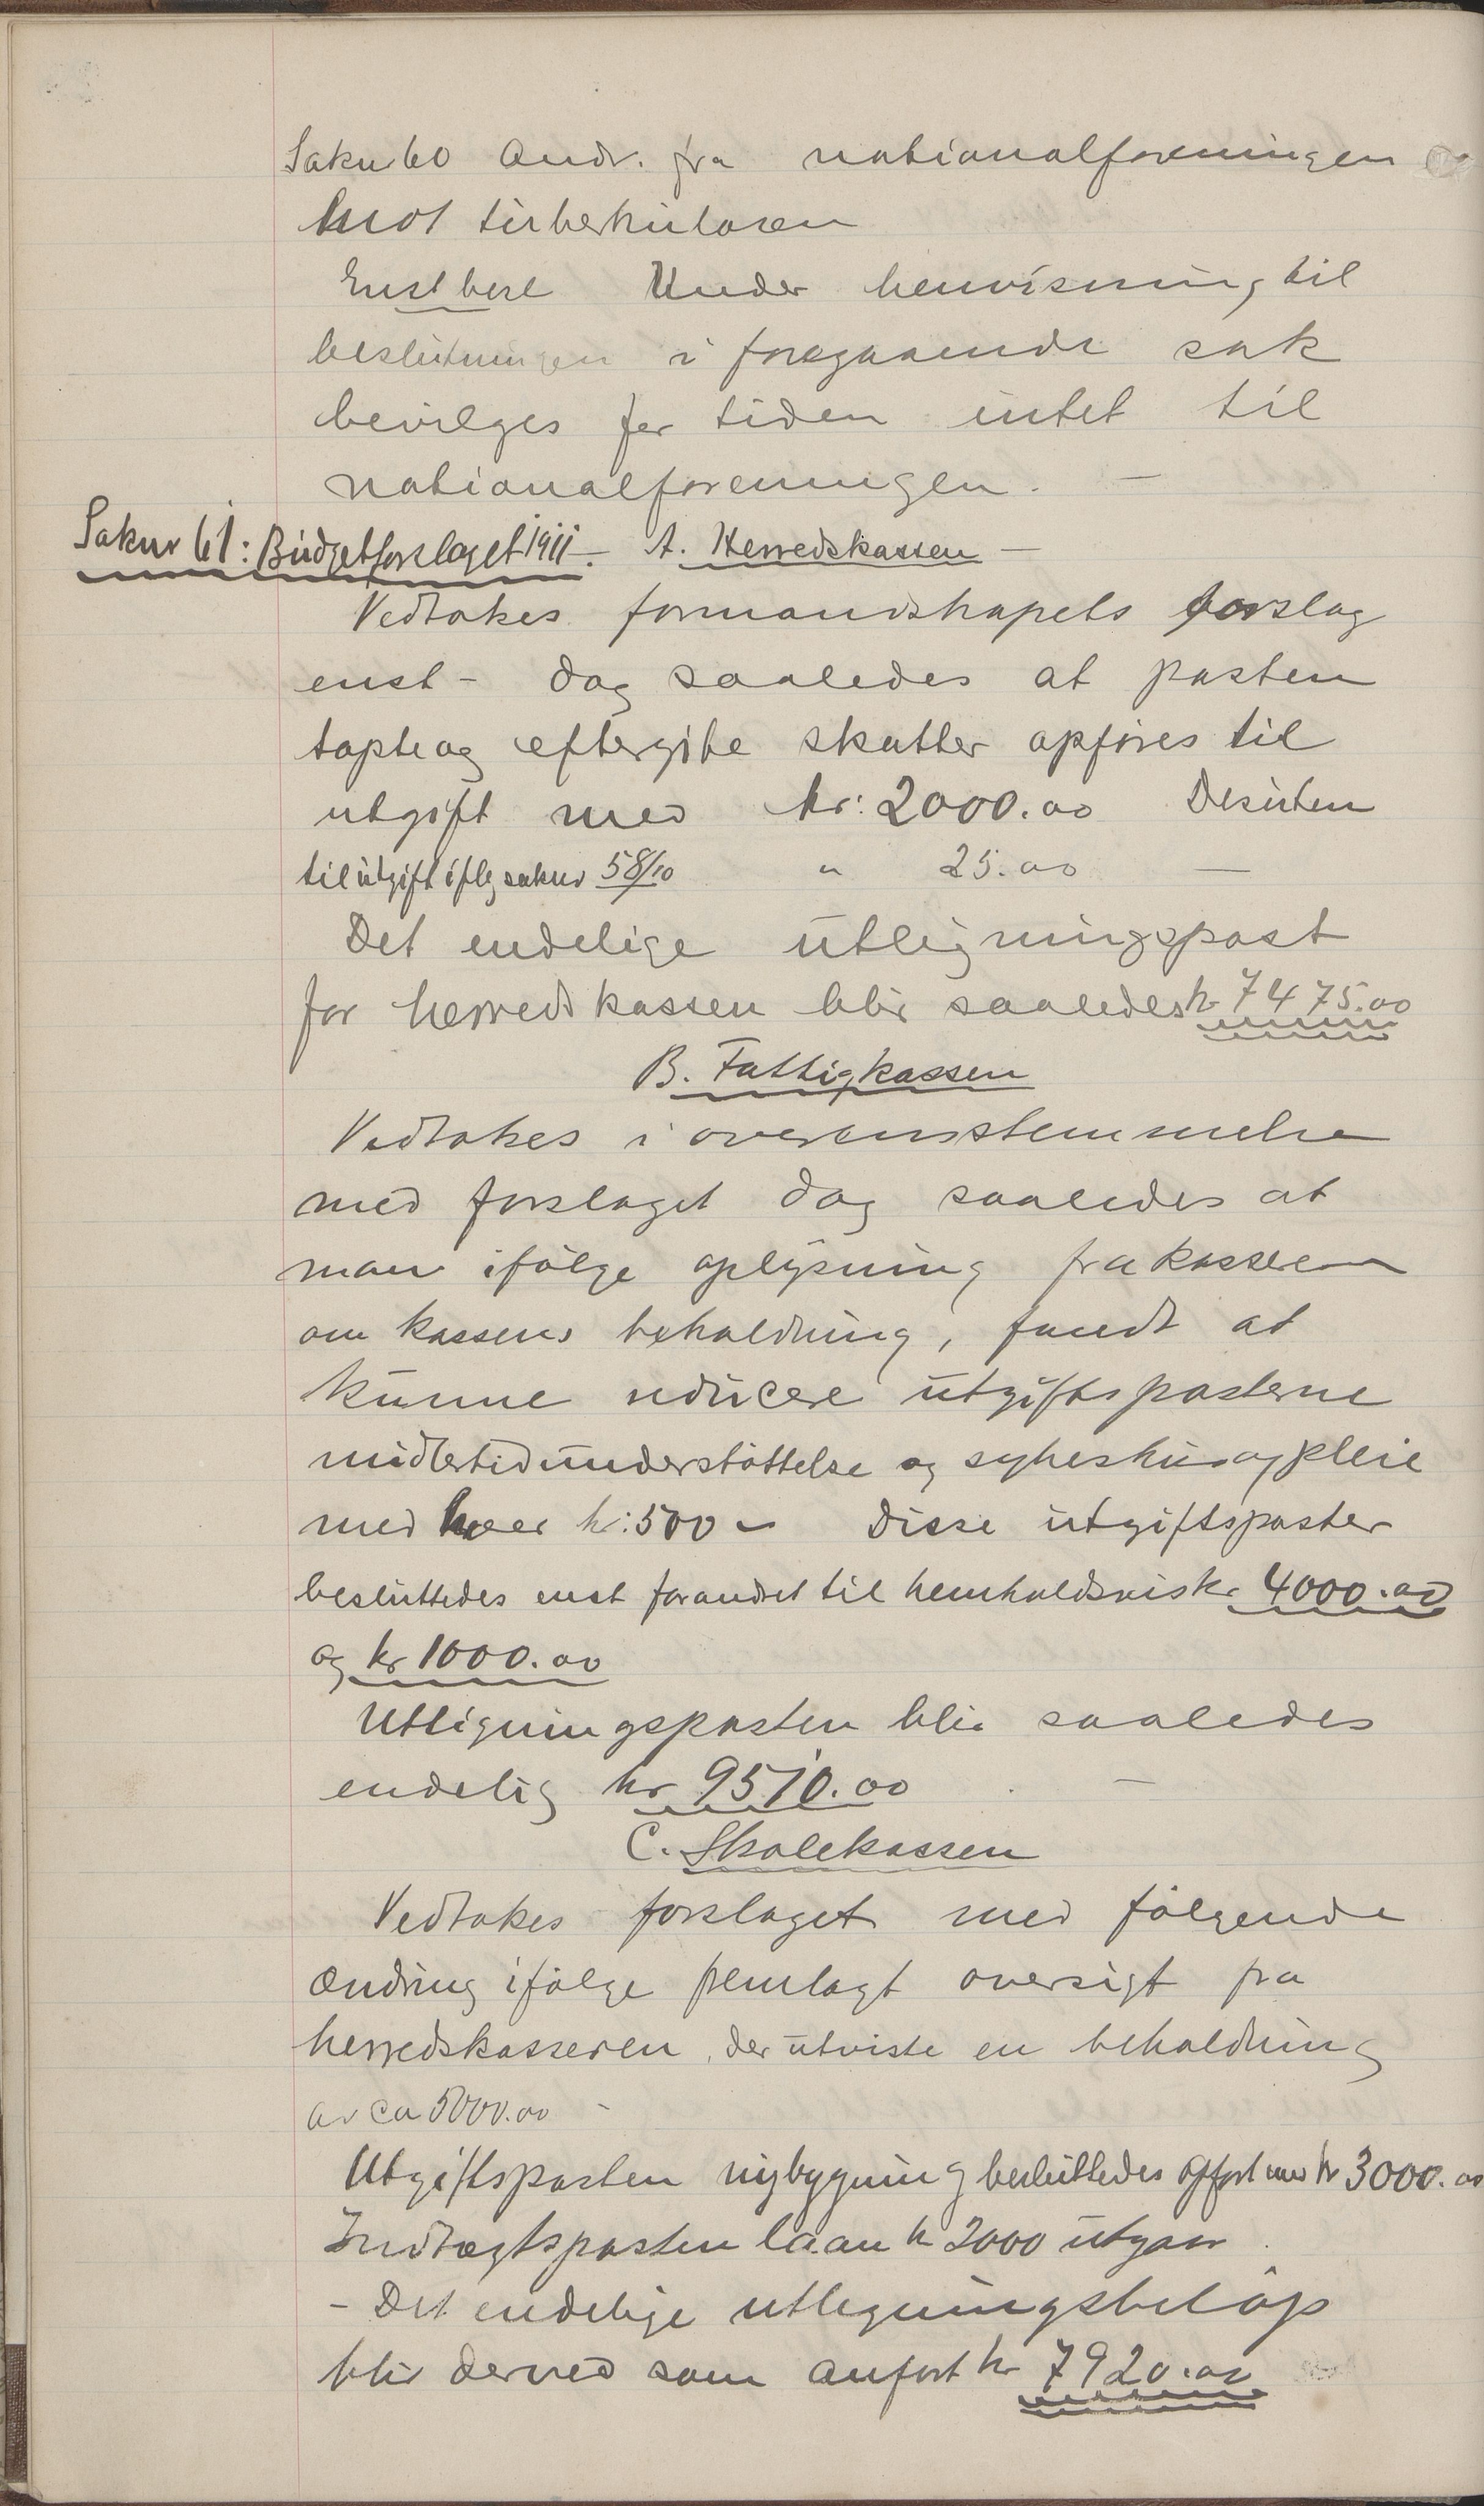 Saknr 60 Andr. fra nationalforeningen
mot tuberkulosen
Enst besl Under henvisning til
beslutningen i foregaaende sak
bevilges for tiden intet til
nationalforeningen. —
Saknr 61: Budgetforslaget 1911. — A. Herredskassen —
Vedtakes formandskapets forslag
enst - dog saaledes at posten
tapte og eftergite skatter opføres til
utgift med kr: 2000.00 Desuten
til utgift iflg saknr 58/10 " 25.00 —
Det endelige utligningspost
for herredskassen blir saaledes kr 7475.00
B. Fattigkassen
Vedtakes i overensstemmelse
med forslaget dog saaledes at
man ifølge oplysning fra kassereren
om kassens beholdning, fandt at
kunne reducere utgiftsposterne
midlertid understøttelse og sykeshus og pleie
med hver kr: 500 - Disse utgiftsposter
besluttedes enst forandret til henholdsvis kr 4000.00
og kr 1000.00
Utligningsposten blir saaledes
endelig kr 9510.00 —
C. Skolekassen
Vedtakes forslaget med følgende
ændring ifølge fremlagt oversigt fra
herredskasseren, der utviste en beholdning
av ca 5000.00 -
Utgiftsposten nybygning besluttedes opført med kr 3000.00
Indtægtsposten laan kr 2000 utgaar.
- Det endelige utlegningsbeløp
blir derved som anført kr 7920.00